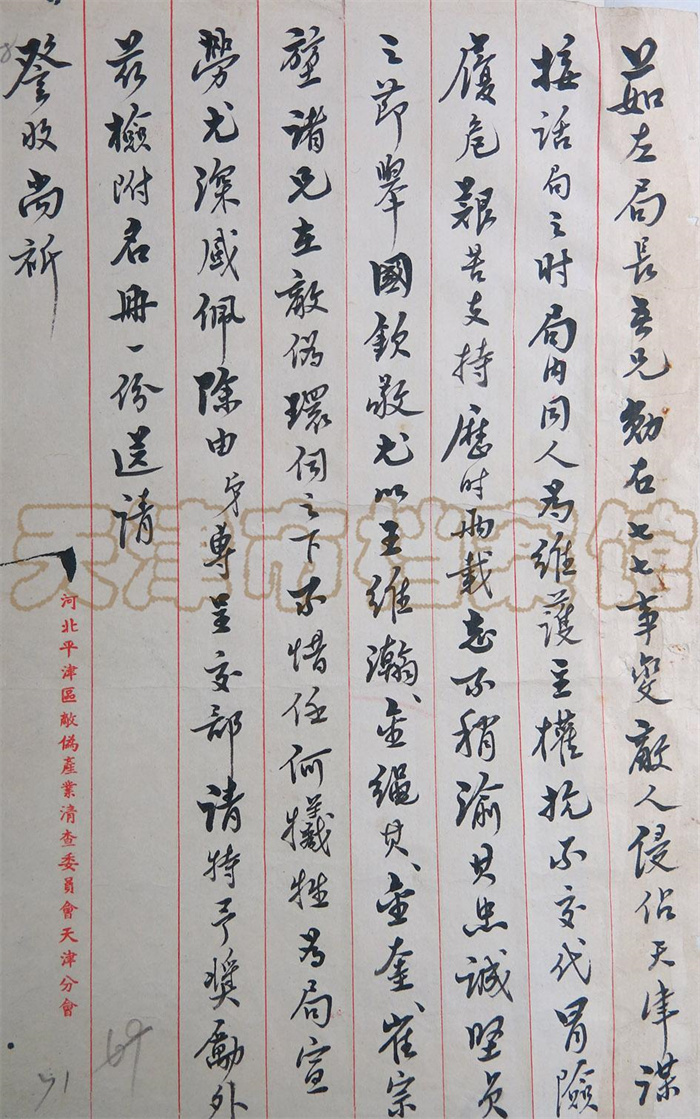 茹左局長吾兄勛右七七事變敵人侵佔天津謀
接話局之时局内同人為維護主權抗不交代冒險
履危艱苦支持歷时兩載志不稍渝其忠誠堅貞
之節舉國欽敬尤以王維瀚、金繩其、金奎、崔宗
瑩諸兄在敵偽環伺之下不惜任何犧牲為局宣
勞尤深感佩除由弟專呈交部請特予獎勵外
茲檢附名冊一份送請
詧收尚祈
河北平津區敵偽產業清查委員會天津分會
天津市档案馆
69
71